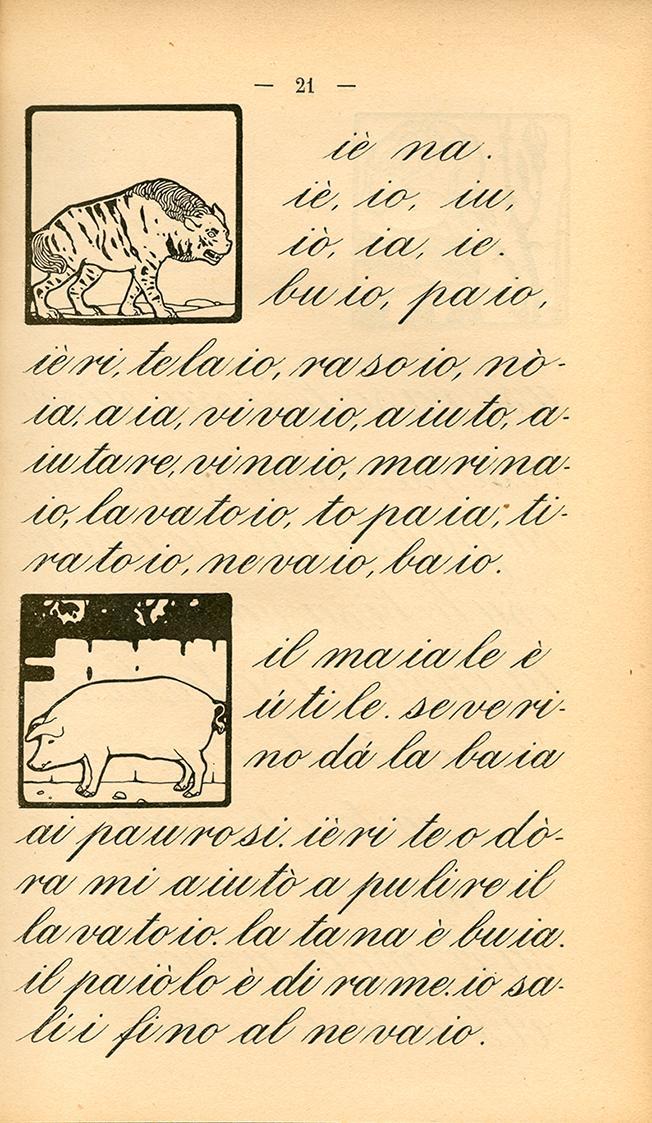 — 21 —
iè na.
iè, io, iu,
iò, ia, ie.
bu io, pa io,
iè ri, te la io, ra so io, nò-
ia, a ia, vi va io, a iu to, a-
iu ta re, vi na io, ma ri na-
io, la va to io, to pa ia, ti-
ra to io, ne va io, ba io.
il ma ia le è
ú ti le. se ve ri-
no dá la ba ia
ai pa u ro si. iè ri te o dò-
ra mi a iu tò a pu li re il
la va to io. la ta na è bu ia.
il pa iò lo è di ra me. io sa-
lí i fi no al ne va io.